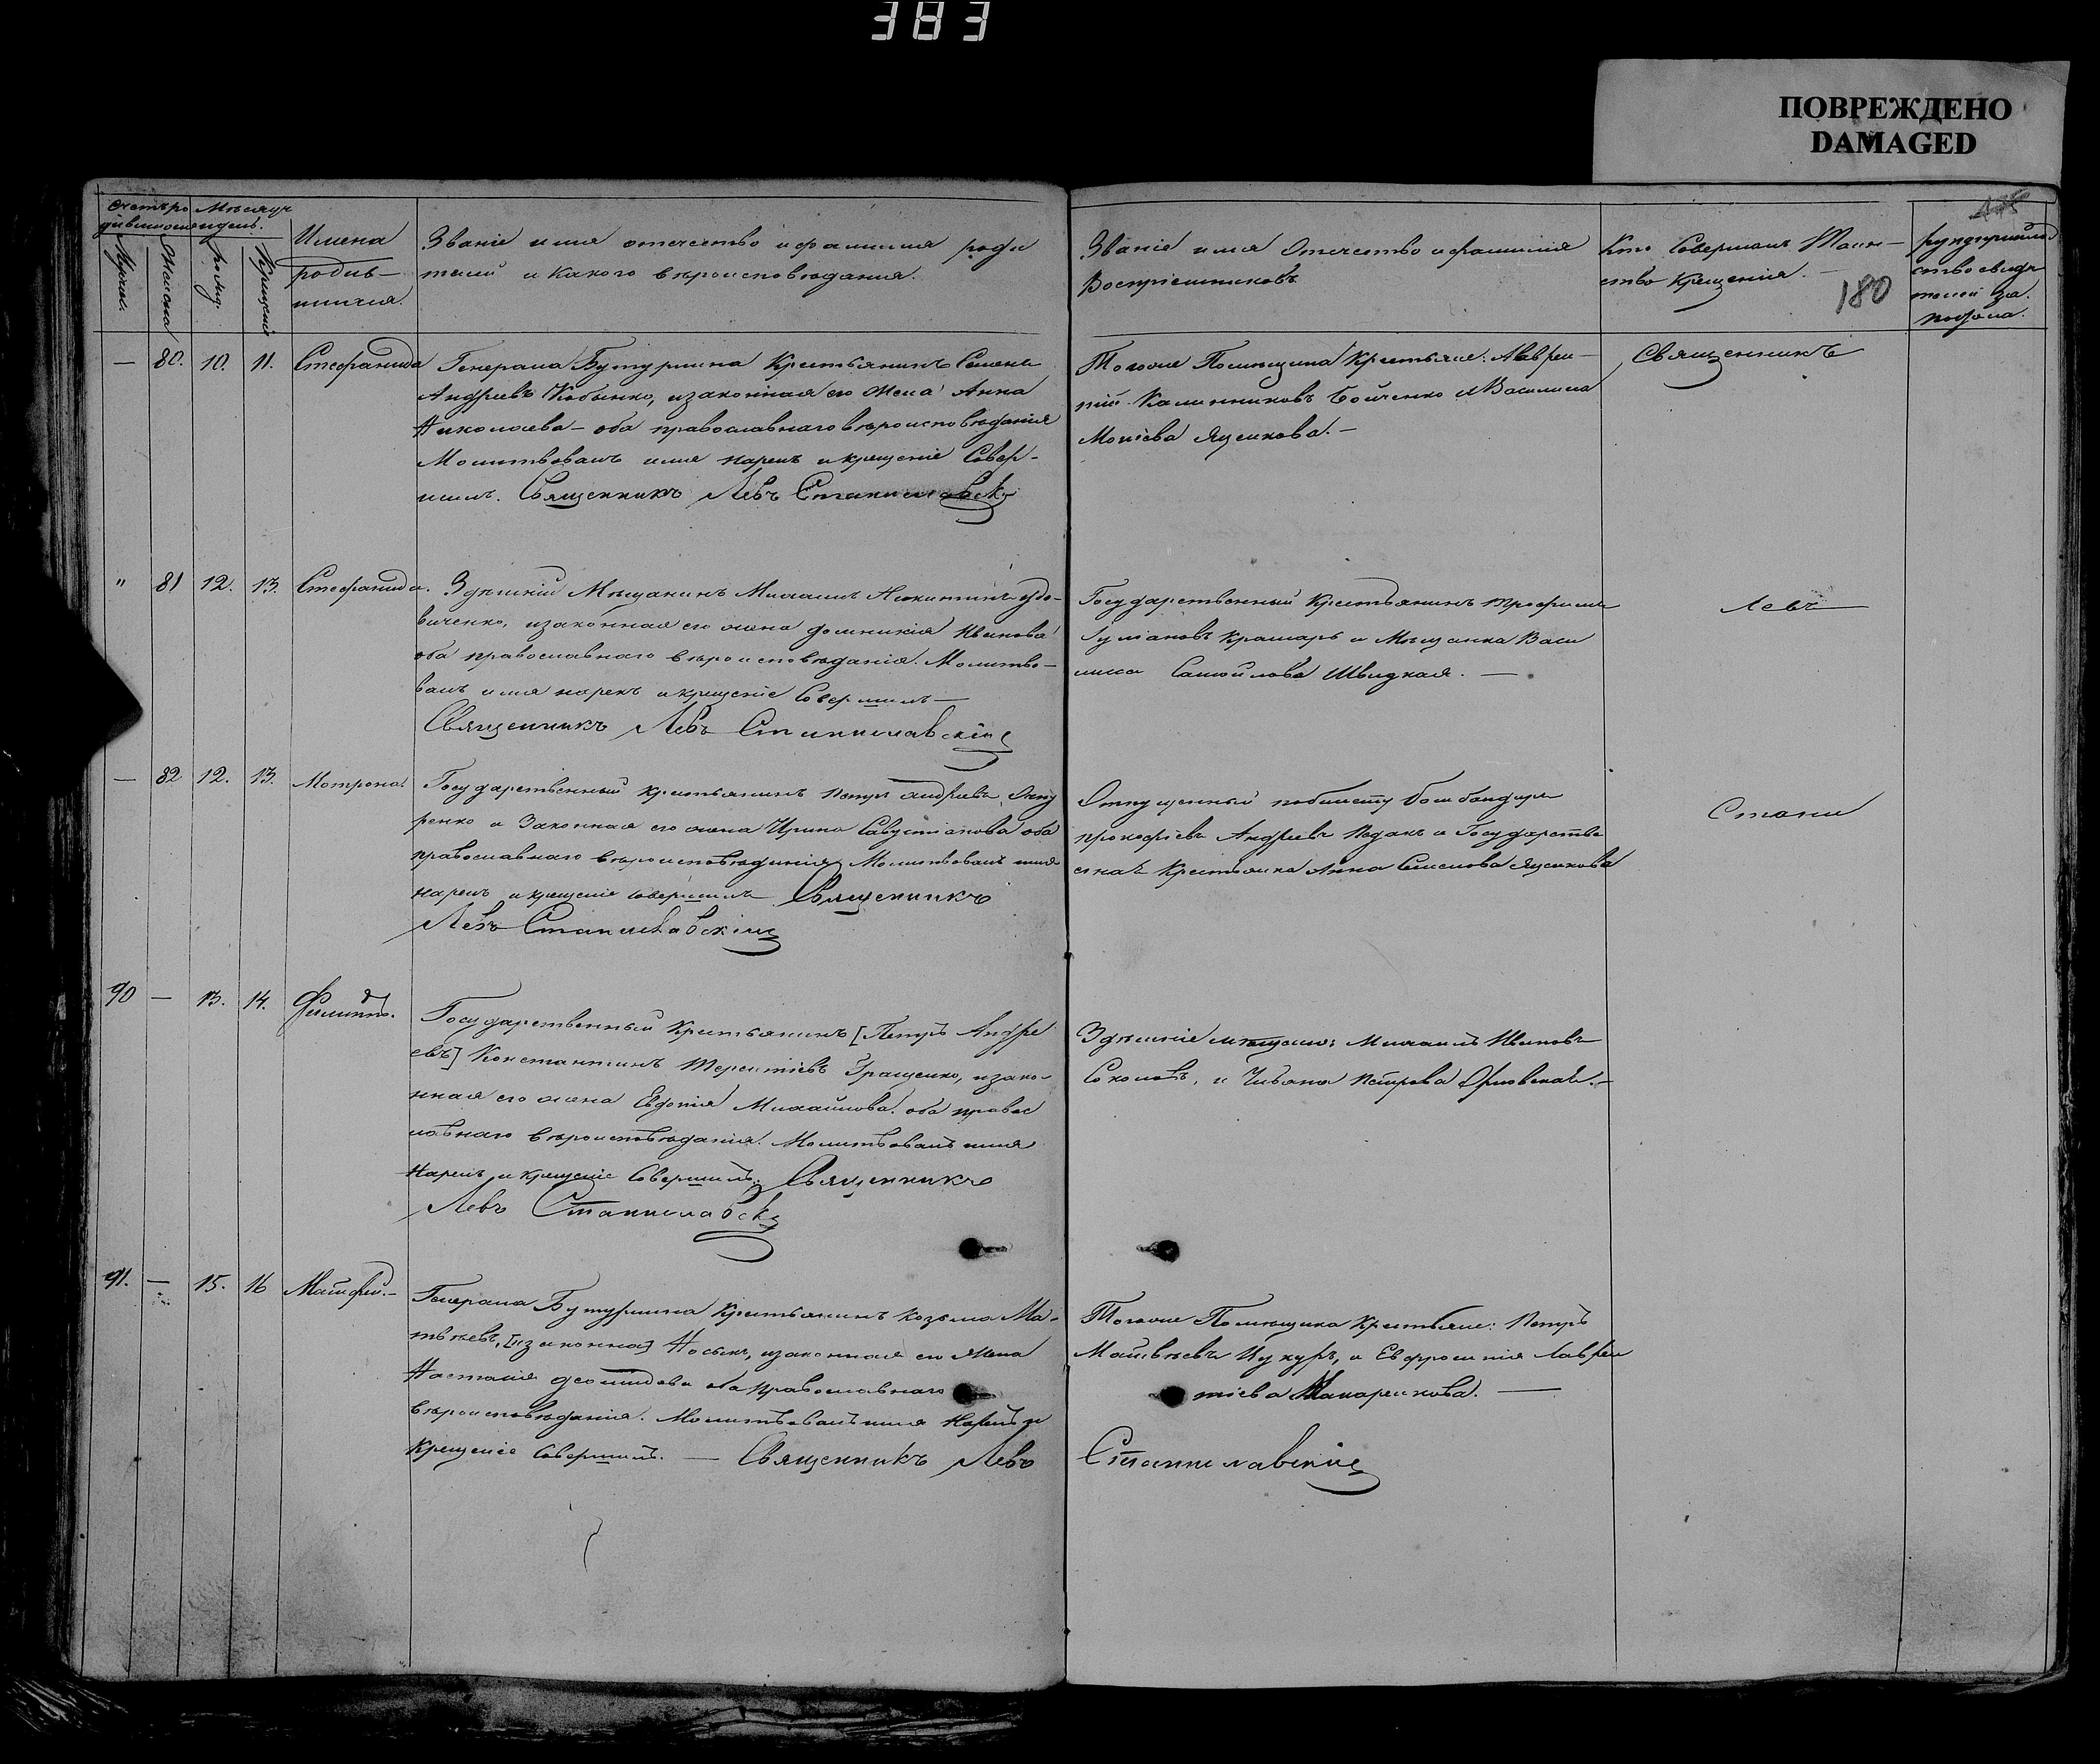 383
ПОВРЕЖДЕНО
DAMAGED
180
Счетъ ро Мѣсяцъ
дившихся и день.
Мужес.
Женска
рожд.
Крещенія
Имена
родив-
шихся.
Званіе имя отечество и фамилия роди
телей и какого вѣроисповѣдания.
Званіе имя Отечество и фамилія
Воспріемниковъ
Кто Совершалъ Таин-
ство Крещенія.
рукоприклад
ство свидѣ
телей за
— 80. 10. 11. Стефанида Генерала Бутурлина Крестьянинъ Семенъ
Андреевъ Кобынко, изаконная его Жена Анна
Николаева — оба православнаго вѣроисповѣдания
Молитвовалъ имя нарекъ и крещеніе Совер-
шилъ. Священникъ Левъ Станиславск
Тогоже Помѣщика Крестьяне: Лаврен-
тій Калинниковъ Бойченко и Василиса
Моисѣева Яценкова. —
Священникъ
" 81 12. 13. Стефанида. Здѣшній Мѣщанинъ Михаилъ Никитинъ
виченко, изаконная его жена Домникія Иванова
оба православнаго вѣроисповѣданія. Молитво-
валъ имя нарекъ и крещеніе Совершилъ —
Священникъ Левъ Станиславскій
Государственный Крестьянинъ Трофимъ
Крамарь и Мѣщанка Васи
лиса Самойлова Швидкая. —
Левъ
— 82 12. 13. Мотрона. Государственный крестьянинъ Петръ Андреевъ
ренко и Законная его жена Ирина Савустіанова оба
православнаго вѣроисповѣдания Молитвовалъ имя
нарекъ и крещеніе совершилъ Священникъ
Левъ Станиславскій
Отпущенный побилету бомбандиръ
прокофіевъ Андреевъ и Государстве
нная Крестьянка Анна Семенова Яценкова
Стани
90 — 13. 14. Филиппъ. Государственный Крестьянинъ [Петръ Андре
евъ] Константинъ Терентіевъ Гращенко, изако-
нная его жена Евдокія Михайлова. оба правос
лавнаго вѣроисповѣдания. Молитвовалъ имя
Нарекъ и крещеніе Совершилъ. Священникъ
Левъ Станиславск
Здѣшніе мѣщане: Михаилъ Ивановъ
Соколовъ, и Ульяна Петрова Орловская. —
91. — 15. 16 Матфей. — Генерала Бутурлина Крестьянинъ Козьма Ма-
твѣевъ, [изаконна] Носыкъ, изаконная его Жена
Настасія Деомидова оба Православнаго
вѣроисповѣдания. Молитвовалъ имя Нарекъ и
Крещеніе Совершилъ. — Священникъ Левъ
Тогоже Помѣщика Крестьяне: Петръ
Матвѣевъ Цукуръ, и Евфросинія Лаврен
тіева Макаренкова. —
Станиславскій